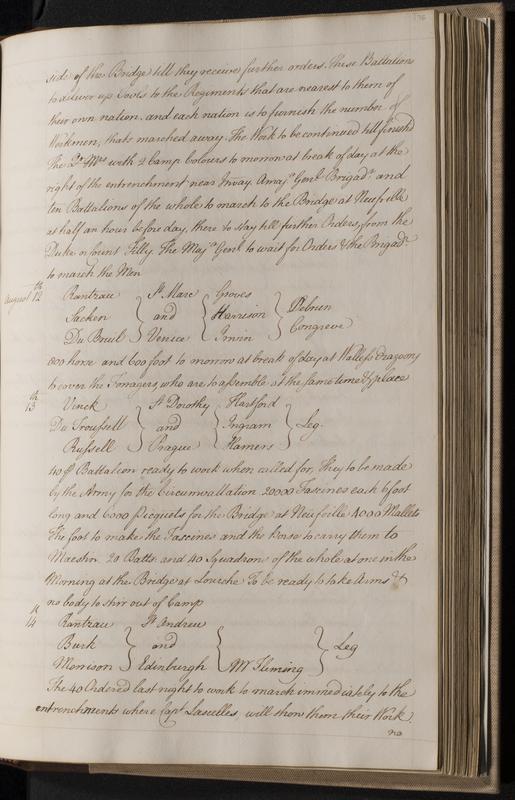 side of the Bridge till they receive further orders. These Battalions
to deliver up Tools to the Regiments that are nearest to them of
their own nation, and each nation is to furnish the number of
Workmen, thats marched away. The Work to be continued till finish'd
The Qr. Mrs. with 2 Camp Colours to morrow at break of day at the
right of the entrenchment near Invay. A majr. Genl. Brigadr. and
ten Battalions of the whole to march to the Bridge at Neufville
at half an hour before day, there to stay till further Orders, from the
Duke or Count Tilly. The Majr. Genl. to wait for Orders & the Brigadr.
to march the Men
August 12th Rantzau } St. Marc { Groves } Debrun
Sacken } and { Harrison } Congreve
Du Breuil } Venice { Irwin }
800 horse and 600 foot to morrow at break of day at Dragoons
to cover the Foragers who are to assemble at the same time & place
13th Vinck } St. Dorothy { Hartford
Du Trousfell } and { Ingram } Leg.
Russell } Prague { Hamers
40 Battalion ready to work when called for, They to be made
by the Army for the Circumvallation 20000 Fascines each 6 foot
long and 6000 Picquets for the Bridge at Neufville 4000 Mallets
The foot to make the Fascines and the horse to carry them to
20 Batts. and 40 Squadrons of the whole at one in the
Morning at the Bridge at Lourche To be ready to take Arms &
no body to stirr out of Camp
14 Rantzau } St. Andrew {
Burk } and { } Leg
Morrison } Edinburgh { Mr. Fleming
The 40 Ordered last night to work to march immediately to the
entrenchments where Capt. Lascelles, will show them their Work.
no